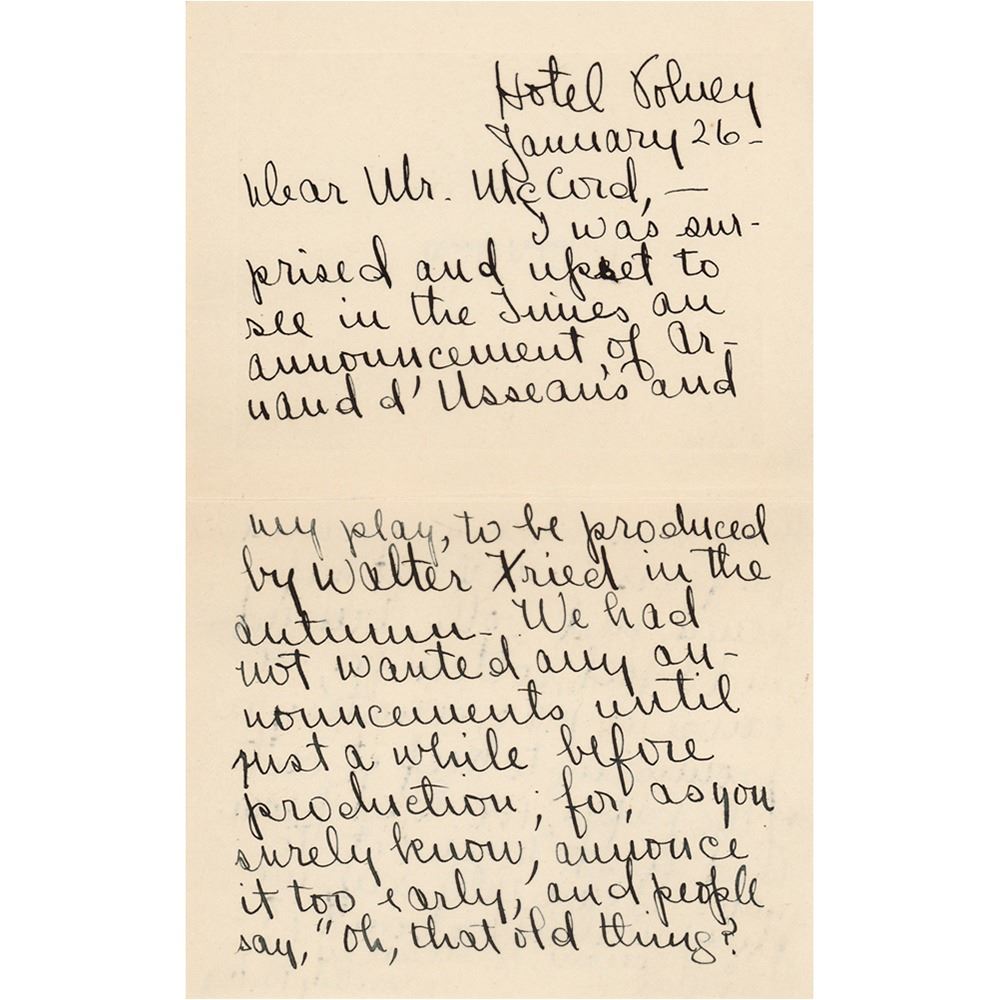 Hotel Volney
January 26-
Dear Mr. McCord, —
I was sur-
prised and upset to
see in the Times an
announcement of Ar-
naud d'Usseau's and
my play, to be produced
by Walter Fried in the
autumn. We had
not wanted any an-
nouncements until
just a while before
production; for, as you
surely know, annonce
it too early, and people
say, "Oh, that old thing?